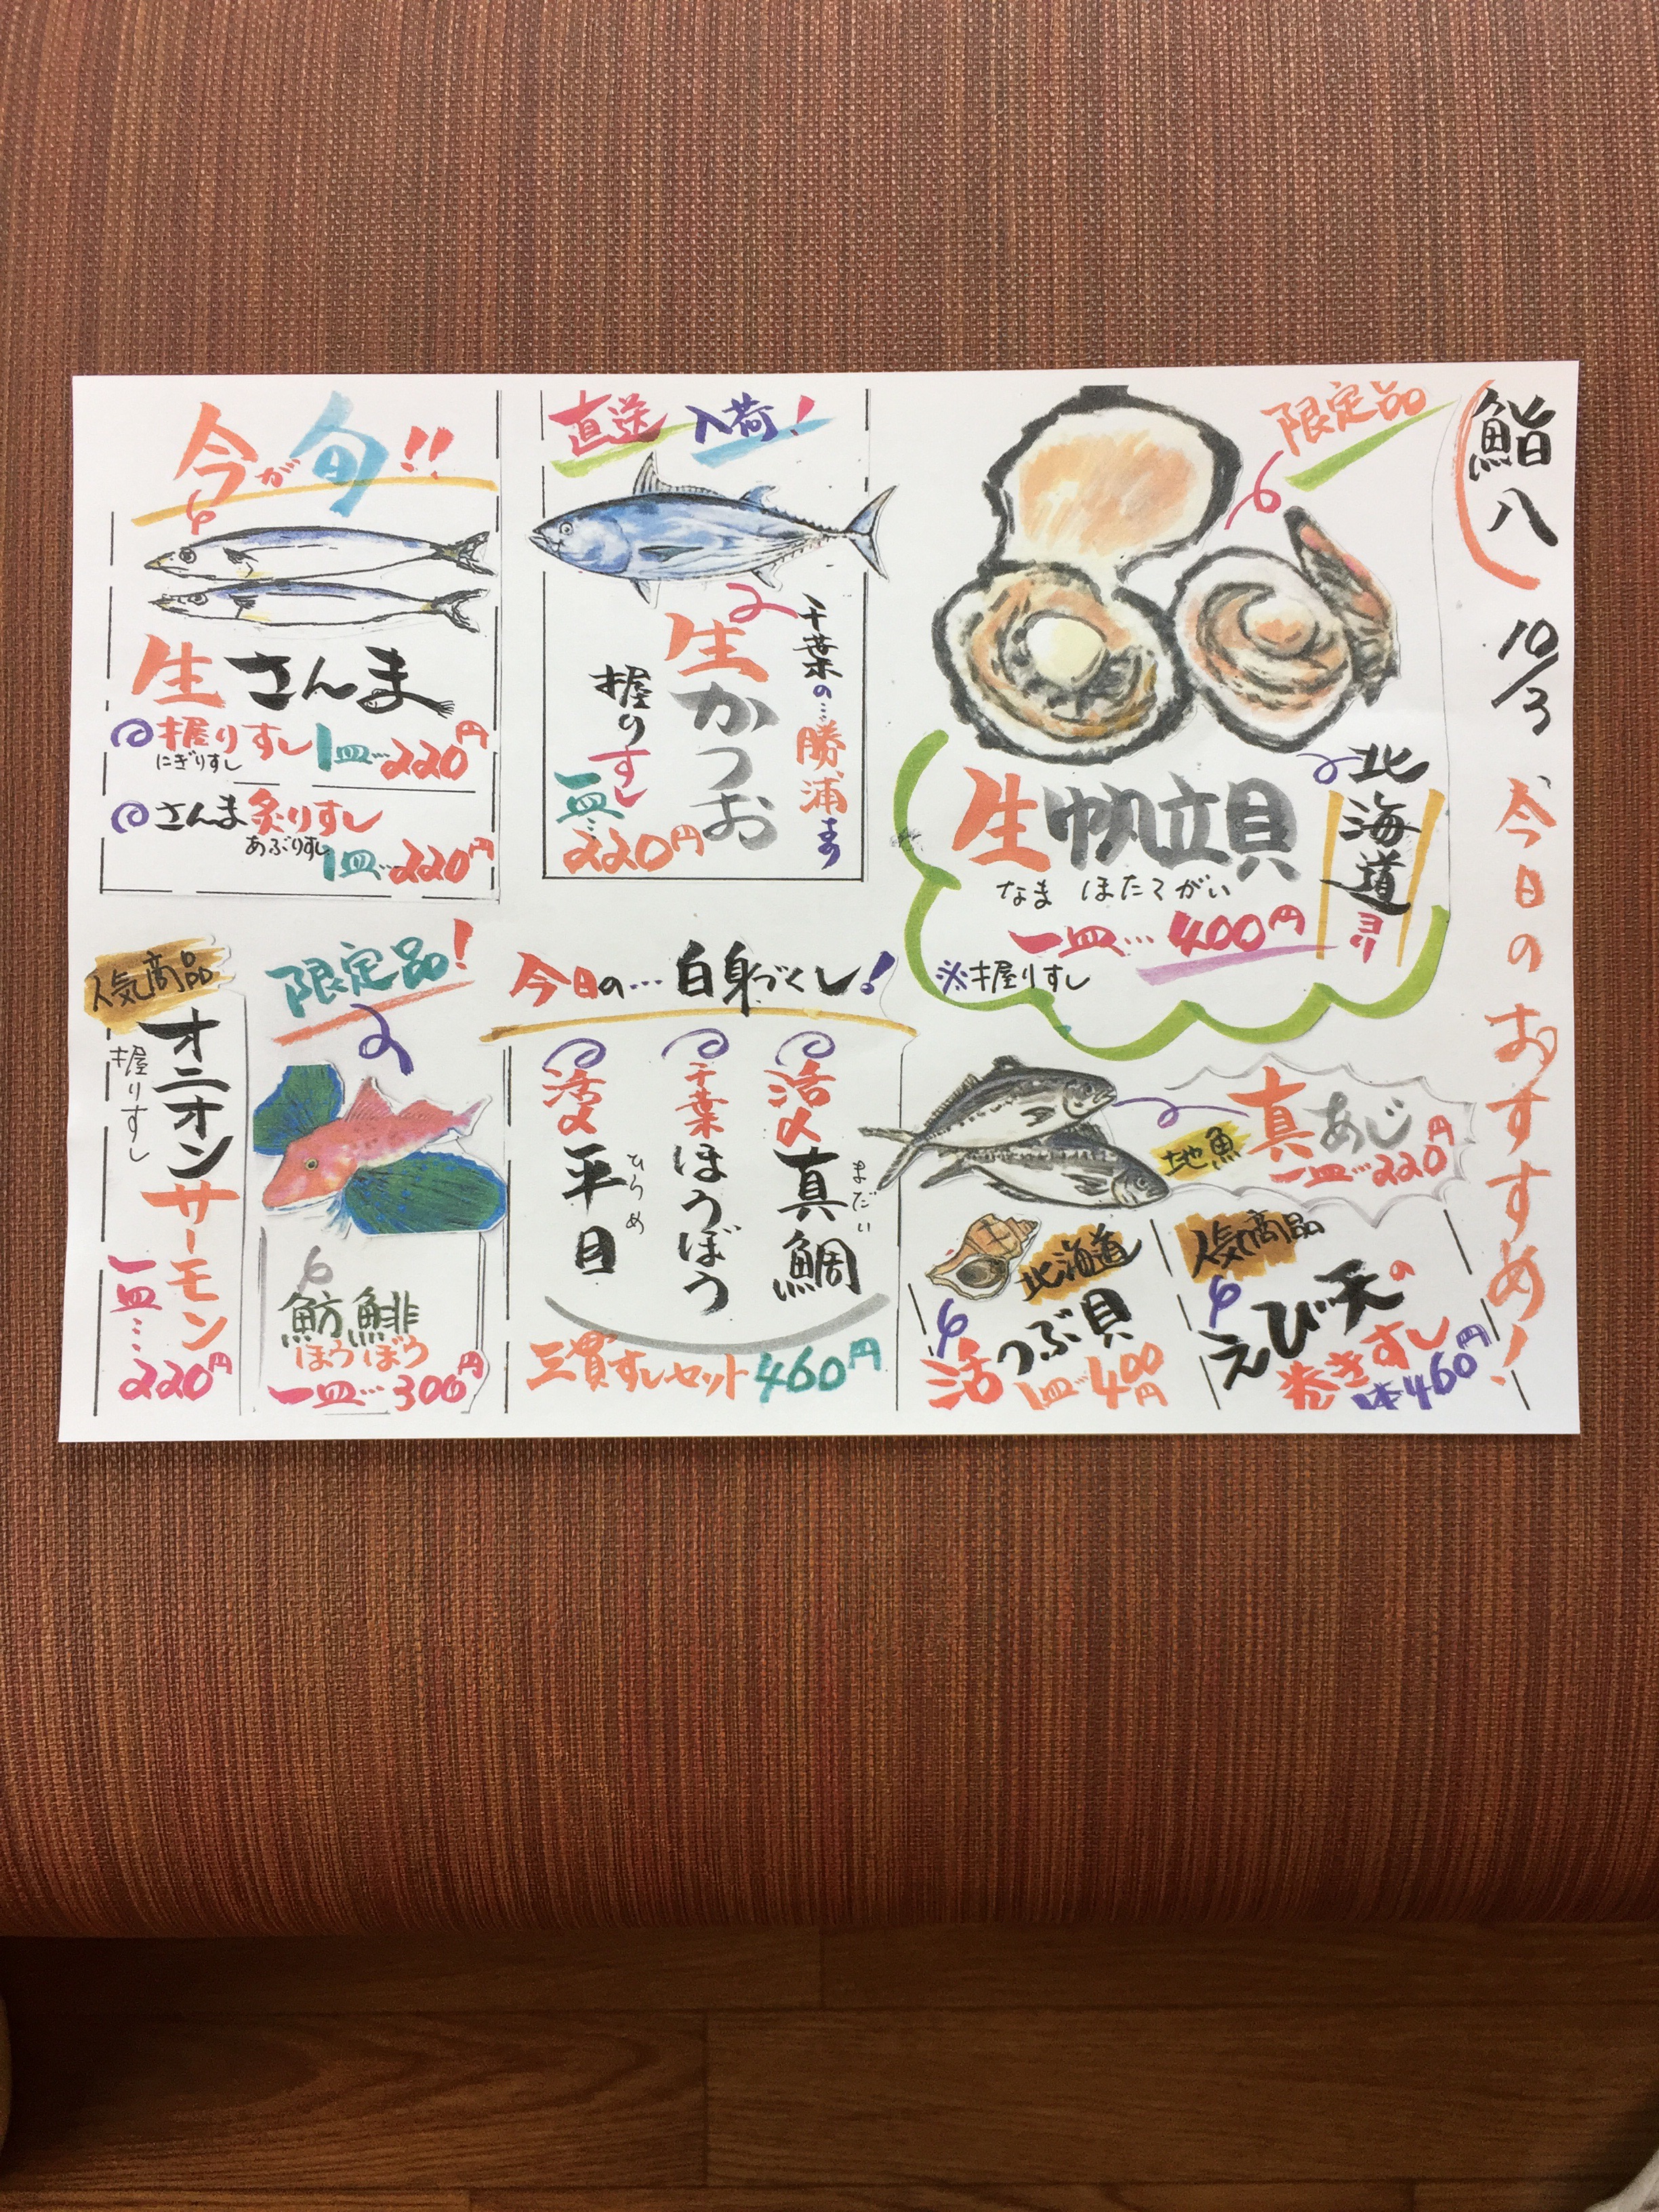 鮨八
10/3
今日のおすすめ!
限定品
北海道ヨリ
生帆立貝
なま ほたてがい
一皿…400円
※握りすし
直送 入荷!
千葉の…勝浦より
生かつお
握りすし
一皿…
220円
今が旬!!
生さんま
握りすし 1皿…220円
にぎりすし
さんま炙りすし
あぶりすし
1皿…220円
地魚
真あじ
一皿…220円
人気商品
えび天の
巻きすし
一本460円
北海道
活つぶ貝
1皿…400円
今日の…白身づくし!
活〆真鯛
まだい
千葉ほうぼう
活〆平目
ひらめ
三貫すしセット460円
限定品!
魴鯡
ほうぼう
一皿…300円
人気商品
オニオンサーモン
握りすし
一皿…
220円